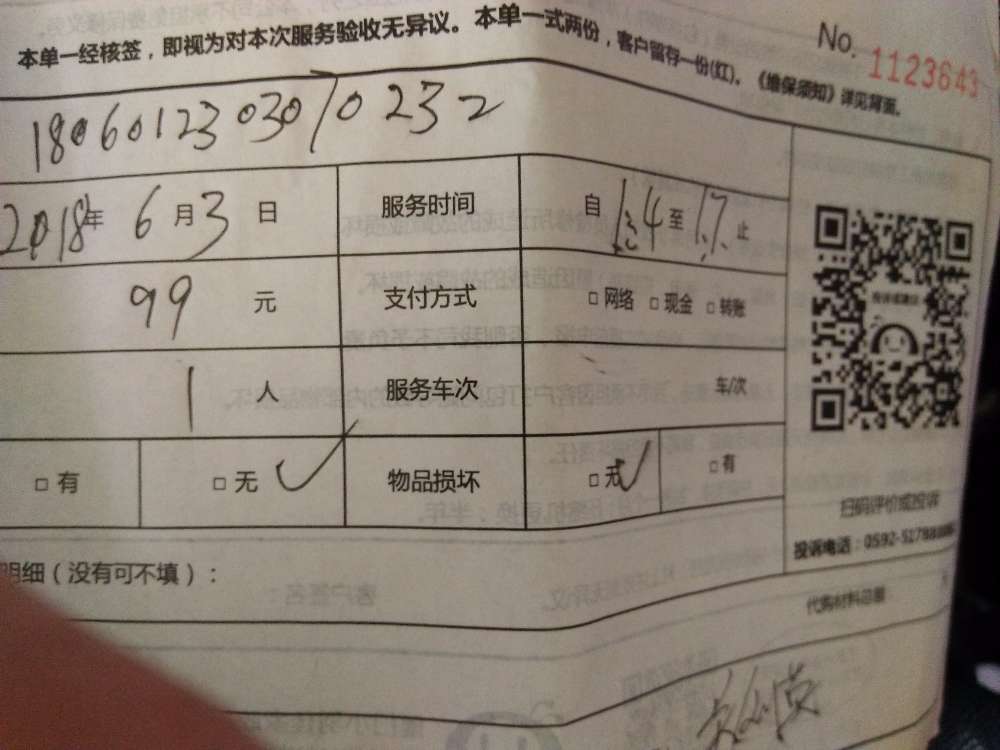 本单一经核签，即视为对本次服务验收无异议。本单一式两份，客户留存一份(红)。《维保须知》详见背面。
No. 1123643
1806012303070232
2018年 6 月 3 日 服务时间 自 至 17 止
99 元 支付方式 □ 网络 □ 现金 □ 转账
1 人 服务车次 车/次
□ 有 □ 无 ✓ 物品损坏 □ 无 ✓ □ 有
扫码评价或投诉
投诉电话：0592-5178
明细（没有可不填）：
代购材料总量